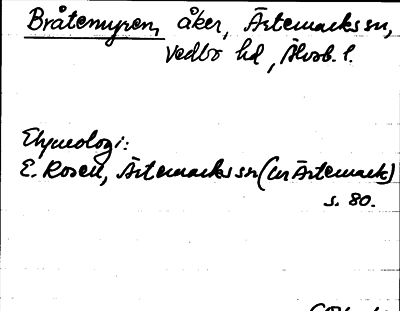 Bråtemyren, åker, Ärtemarks sn,
Vedbo hd, Älvsb. l.
Etymologi:
E. Rosell, Ärtemarks sn (ur Ärtemark)
s. 80.